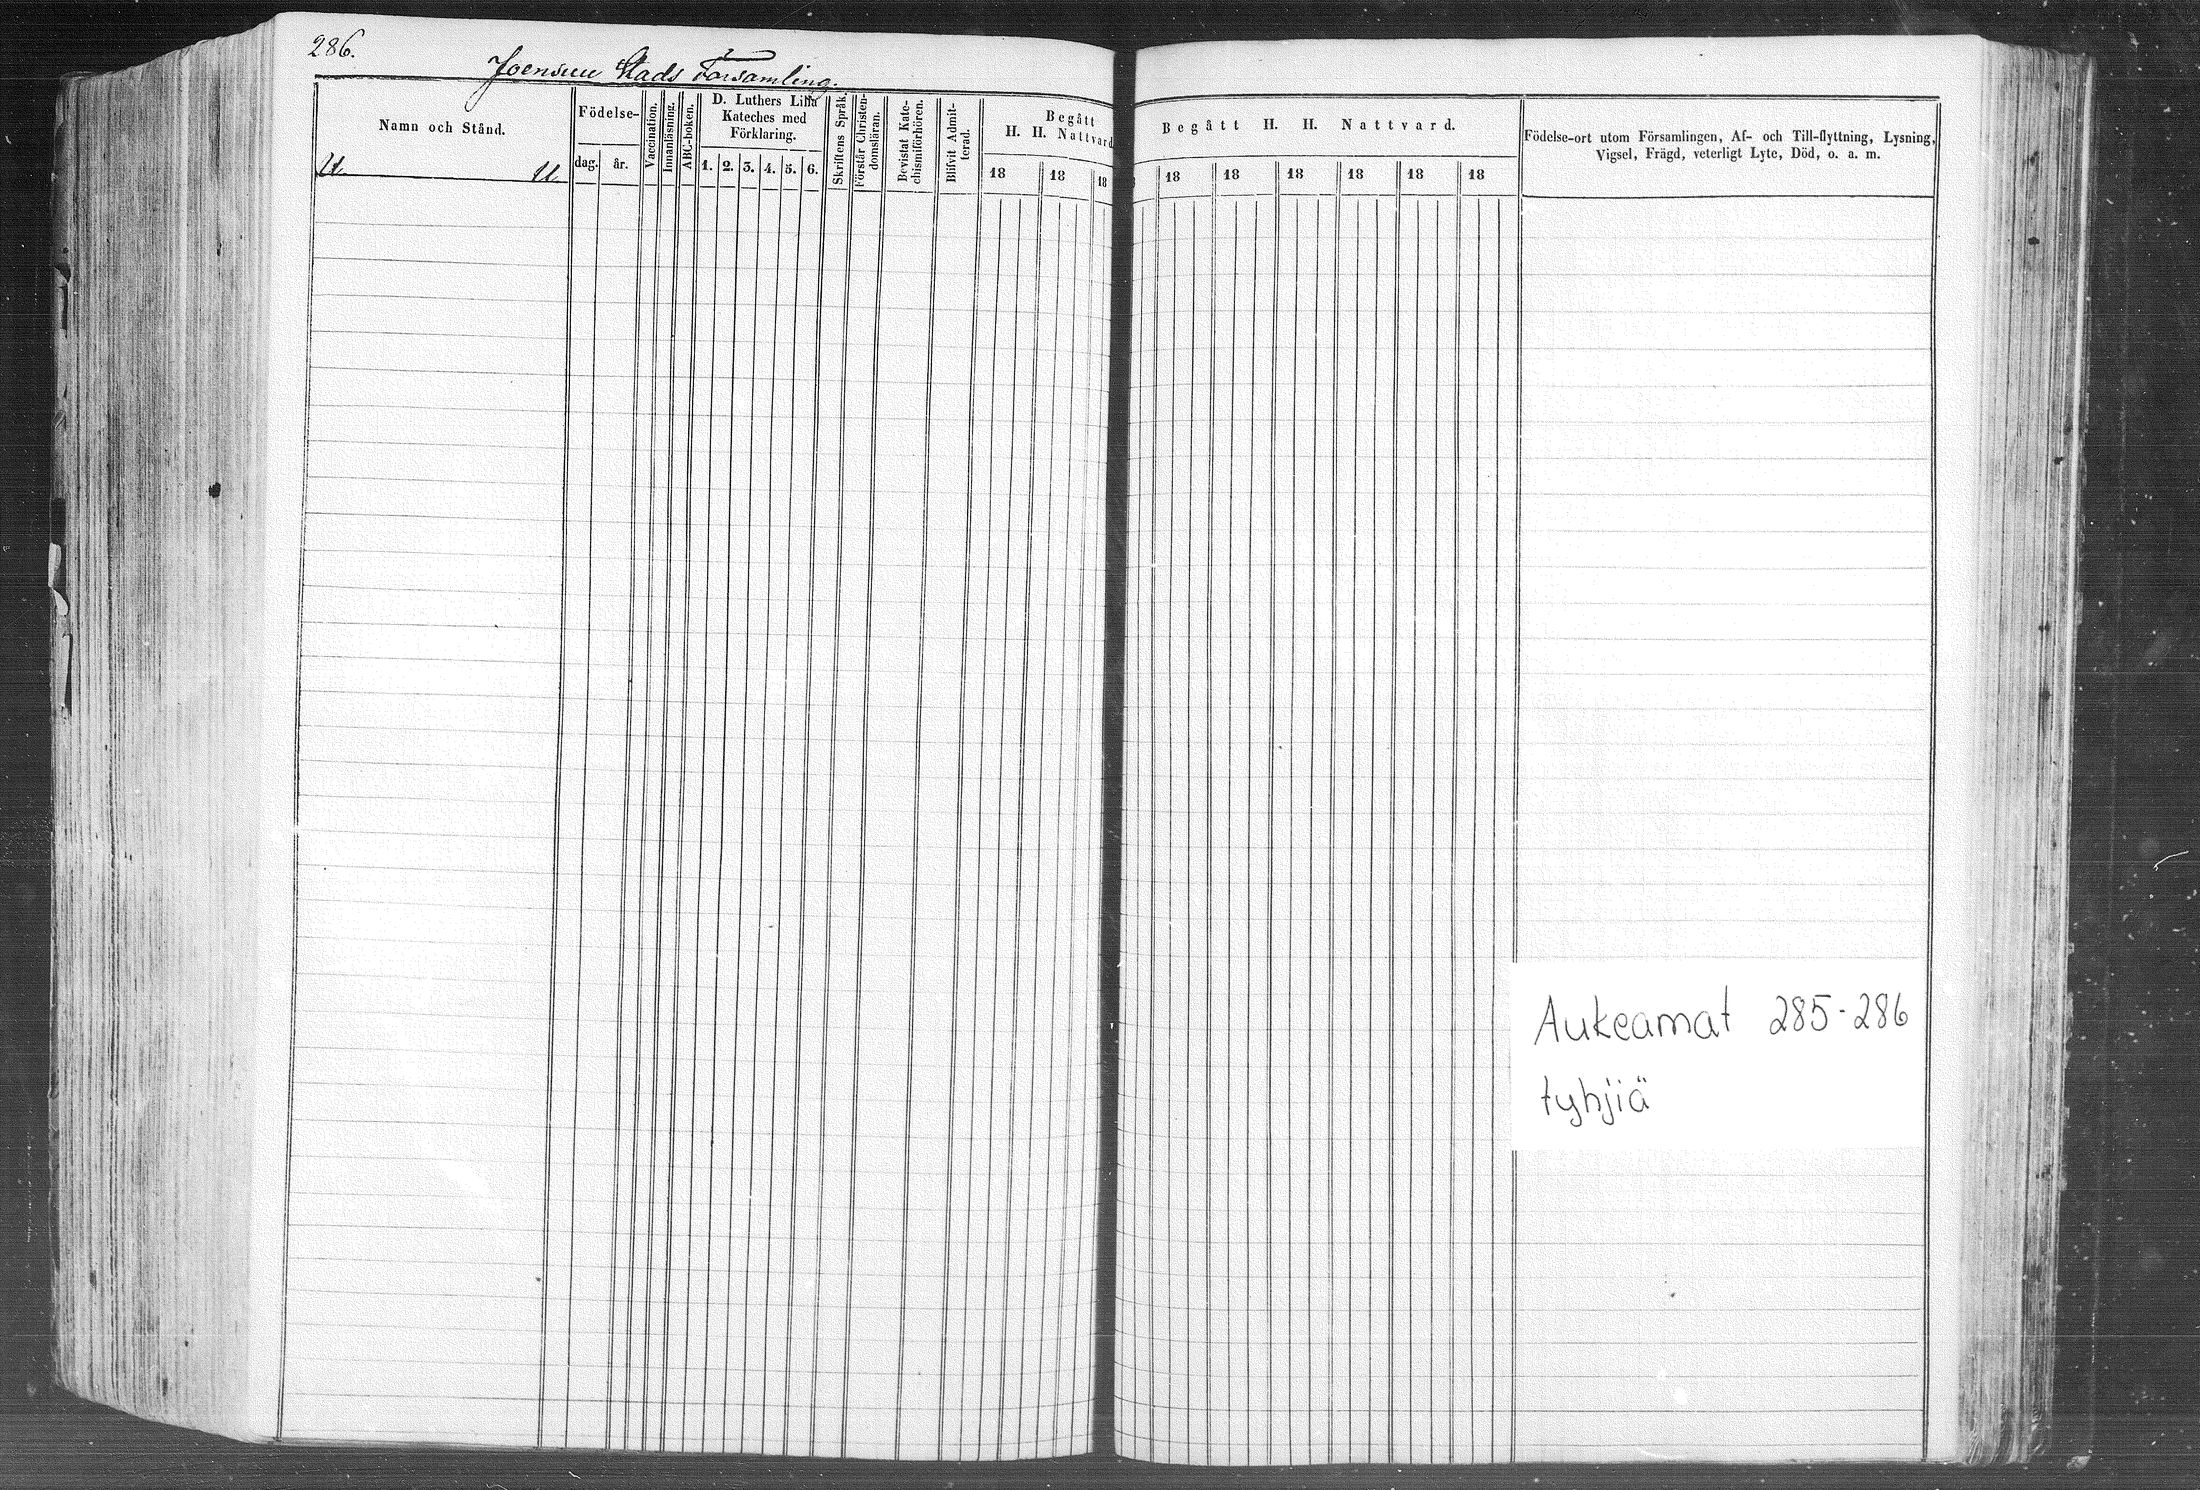 286.
Joensuu Stads Församling.
Namn och Stånd.
U. U.
Födelse-
dag. år.
Vaccination.
Innanläsning.
ABC-boken.
D. Luthers Lilla
Kateches med
Förklaring.
1. 2. 3. 4. 5. 6.
Skriftens Språk.
Förstår Christen-
domsläran.
Bevistat Kate-
chismiförhören.
Blifvit Admit-
terad.
Begått
H. H. Nattvard
18 18 18
Begått H. H. Nattvard.
18 18 18 18 18 18
Födelse-ort utom Församlingen, Af- och Till-flyttning, Lysning,
Vigsel, Frägd, veterligt Lyte, Död, o. a. m.
Aukeamat 285-286
tyhjiä